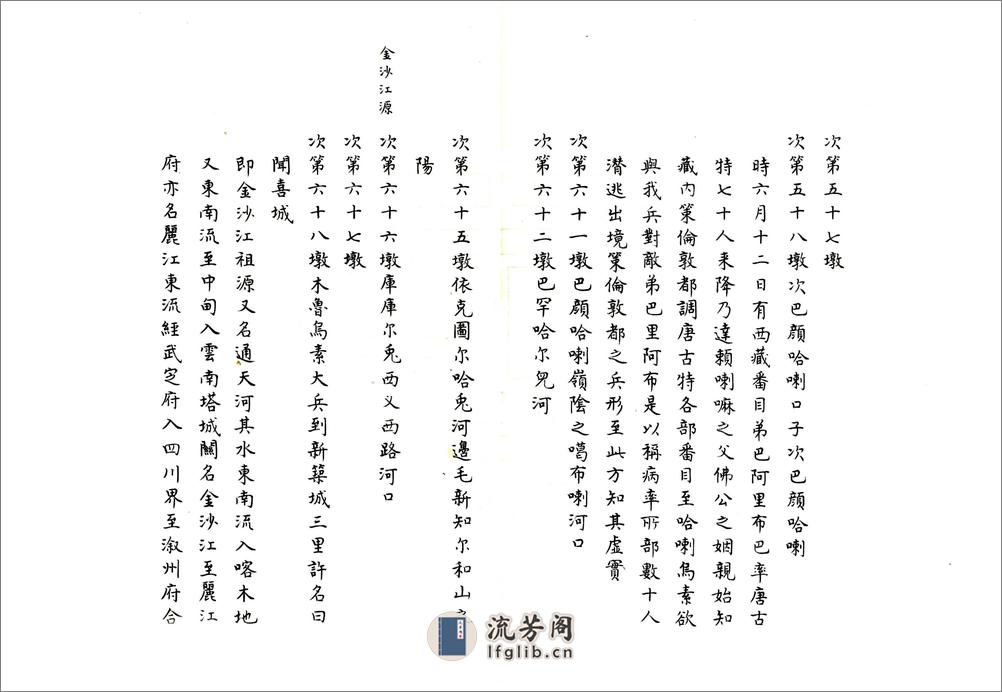 次第五十七墩
次第五十八墩次巴顔哈喇口子次巴顔哈喇
時六月十二日有西藏番目弟巴阿里布巴率唐古
特七十人来降乃達賴喇嘛之父佛公之姻親始知
藏內策倫敦都調唐古特各部番目至哈喇烏素欲
與我兵對敵弟巴里阿布是以稱病率所部數十人
潛逃出境策倫敦都之兵形至此方知其虛實
次第六十一墩巴顔哈喇嶺陰之噶布喇河口
次第六十二墩巴罕哈尔兒河
次第六十五墩依克圖尔哈兎河邊毛新知尔和山之
陽
次第六十六墩庫庫尔兎西义西路河口
次第六十七墩
次第六十八墩木魯烏素大兵到新築城三里許名曰
聞喜城
金沙江源
即金沙江祖源又名通天河其水東南流入喀木地
又東南流至中甸入雲南塔城關名金沙江至麗江
府亦名麗江東流經武定府入四川界至溆州府合
流芳阁
lfglib.cn